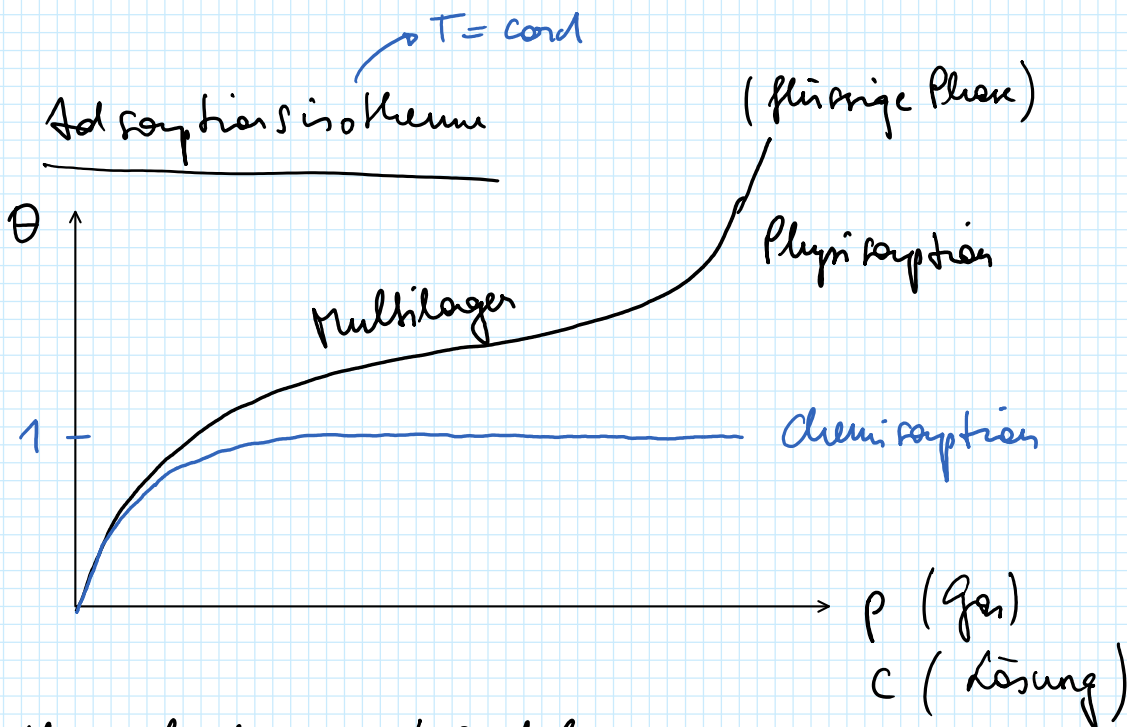 T = const
Adsorptionsisotherme
(flüssige Phase)
θ
Physisorption
Multilager
1
Chemisorption
p (Gas)
c (Lösung)